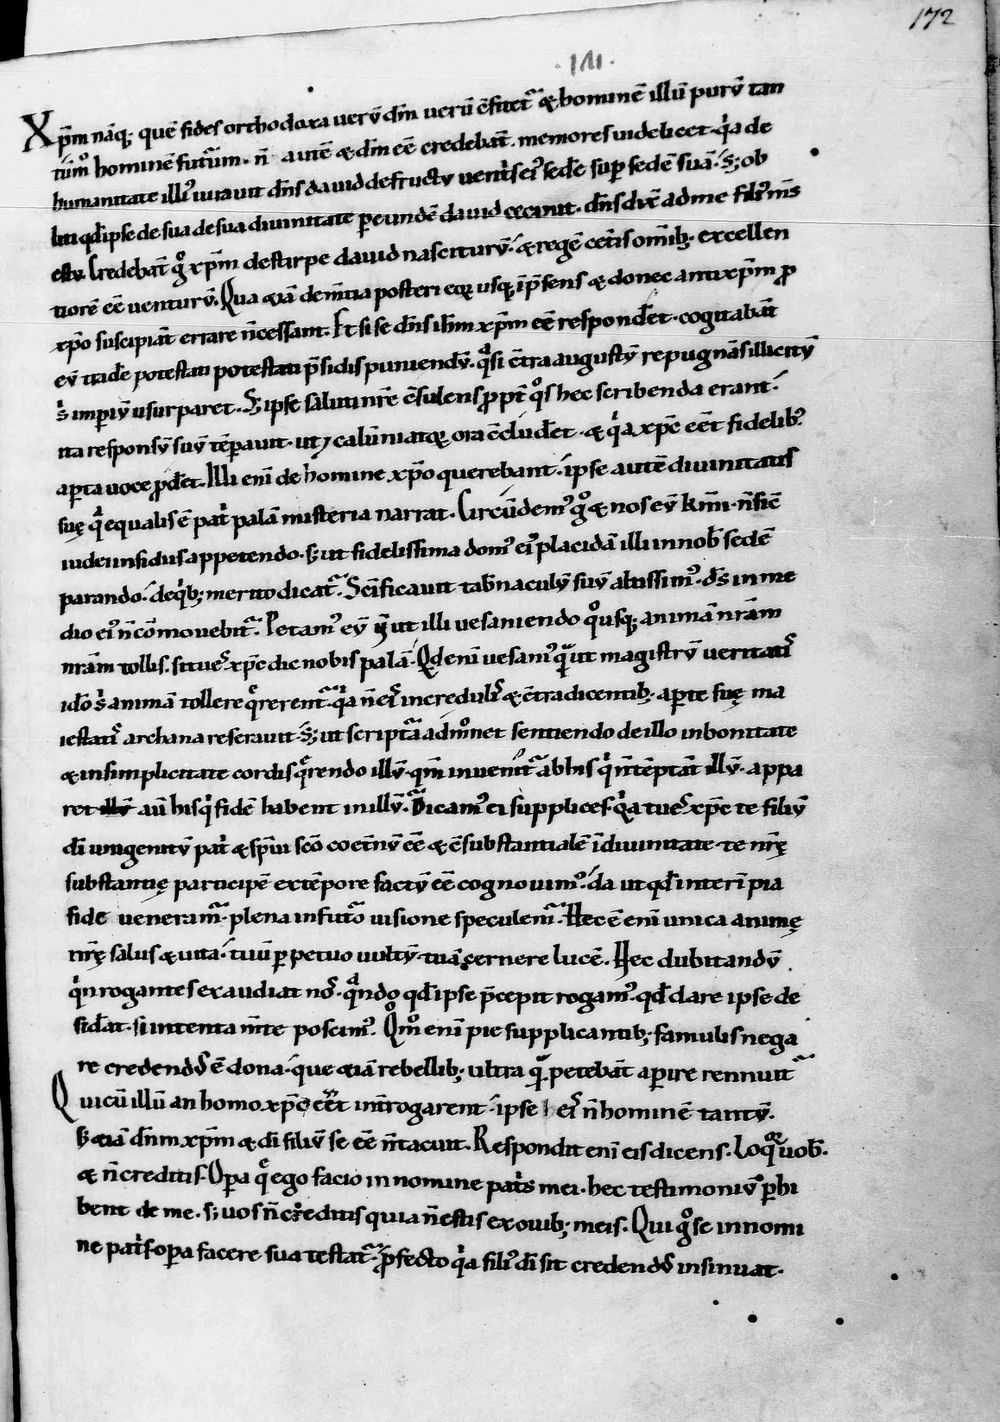 172
·IIII·
Xp̄m nāq; quē fides orthodoxa verū dm̄ verū c̄fitet᷑ & hominē illū purū tan
tūm̊ hominē futurum. n̄ autē & dm̄ eē credebat̄. memores videlicet q̇a de
humanitate illiꝰ iuravit dn̄s david de fructu ventris eiꝰ sedē sup̱ sedē suā. s; ob
liti qd̄ ipse de sua de sua divinitate p̱ eundē david cecinit. dn̄s dix̄ ad me filiꝰ m̄s
es tu. Credebat̄ g̊ xp̄m de stirpe david nasciturū. & regē cet̄is om̄ib; excellen
tiorē eē venturū. Qua etiā dem̄tia posteri eoꝝ usq; īp̄sens & donec antixp̄m ꝓ
xp̄o suscipiāt errare n̄ cessant. Et si se dn̄s ih̄m xp̄m eē responderet. cogitabāt
eū trade potestati potestati p̄sidis puniendū. q̈si c̄tra augustū repugnās illicitū
s̄ imp̱iū usurparet. S; ipse saluti nr̄e c̄sulens ꝓpt̄ q̊s hec scribenda erant.
ita responsū suū tēp̱avit. ut & calūniatiūꝝ ora c̄cluderet. & q̇a xp̄c eēt fidelibꝰ
ap̱ta voce ꝓderet. Illi eni̅ de homine xp̄o querebant. ipse autē divinitatis
suę q̄ equalis ē pat̄ palā misteria narrat. Circūdemꝰ g̊ & nos eū kr̄mi. n̄ sicē
iudei insidiis appetendo. s; ut fidelissima domꝰ eiꝰ placidā illi in nob̄ sedē
parando. de q̇b; merito dicat᷑. Sc̄ificavit tab̄naculū suū altissimꝰ. ds̄ in me
dio eiꝰ n̄ cōmovebit᷑. Petamꝰ eū n̄ ut illi vesaniendo q̊usq; animā nr̄am
nr̄am tollis. si tu es xp̄c dic nobis palā. Qd̄ eni̅ vesaniꝰ q̄ ut magistrū veritatis
id̄o s̄ animā tollere q̄rerent᷑ q̇a n̄ eis incredulis & c̄tradicentib; ap̱te suę ma
iestatis archana reseravit. S; ut scriptura admonet sentiendo de illo in bonitate
& in simplicitate cordis q̄rendo illū. qm̄ invenit᷑ ab his q̇ n̄ tēptāt illū. appa
ret aūt his q̇ fidē habent in illū. Dicamꝰ ei supplices. q̇a tu es xp̄c te filiū
dī unigenitū pat̄ & sp̄ui sc̄o coet̄nū eē & c̄substantialē ī divinitate. te nr̄ę
substantię participē ex tēpore factū eē cognovimꝰ. da ut qd̄ interi̅ pia
fide veneram᷑. plena in futuro visione speculem᷑. Hec ē eni̅ unica animę
nr̄ę salus & vita. tuū p̱petuo vultū. tuā cernere lucē. Hec dubitandū
q̇n rogantes exaudiat nos. q̈ndo qd̄ ipse p̄cepit rogamꝰ. qd̄ dare ipse de
siderat. si intenta m̄te poscimꝰ. Qm̊ eni̅ pie supplicantib; famulis nega
re credendꝰ ē dona. que etiā rebellib; ultra q̄ petebāt ap̱ire rennuit
Qui cū illū an homo xp̄c eēt int̄rogarent. ipse eis n̄ hominē tantū.
s; etiā dn̄m xp̄m & dī filiū se eē n̄ tacuit. Respondit eni̅ eis dicens. Loq̊r vob̄.
& n̄ creditis. Op̱a q̄ ego facio in nomine pat̄s mei. hec testimoniū p̱hi
bent de me. s; vos n̄ creditis quia n̄ estis ex ovib; meis. Qui g̊ se in nomi
ne pat̄s op̱a facere sua testat᷑. p̱fecto q̇a filiꝰ dī sit credendꝰ insinuat.